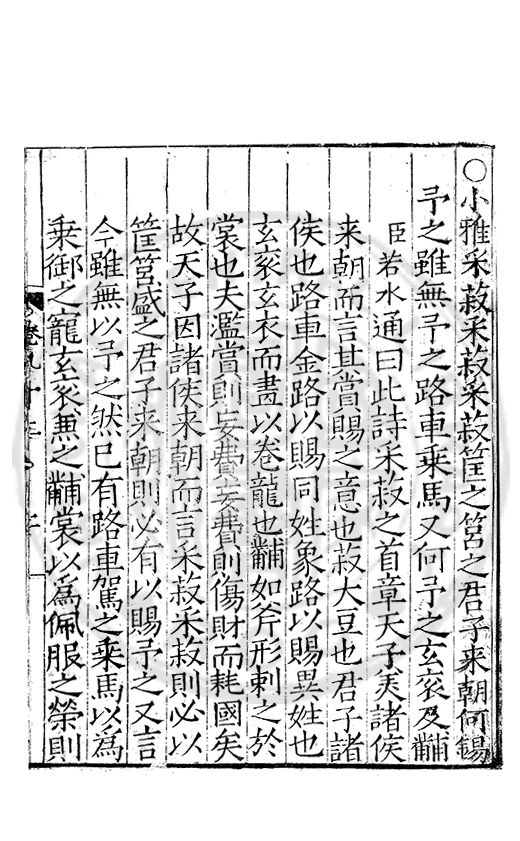 ○小雅采菽采菽采菽筐之筥之君子来朝何錫
予之雖無予之路車乗馬又何予之玄衮及黼
臣若水通曰此詩采菽之首章天子美諸侯
来朝而言其賞賜之意也菽大豆也君子諸
侯也路車金路以賜同姓象路以賜異姓也
玄衮玄衣而畫以卷龍也黼如斧形刺之於
裳也夫濫賞則妄費妄費則傷財而耗國矣
故天子因諸侯来朝而言采菽采菽則必以
筐筥盛之君子来朝則必有以賜予之又言
今雖無以予之然已有路車駕之乗馬以為
乗御之寵玄衮兼之黼裳以為佩服之榮則
卷九十